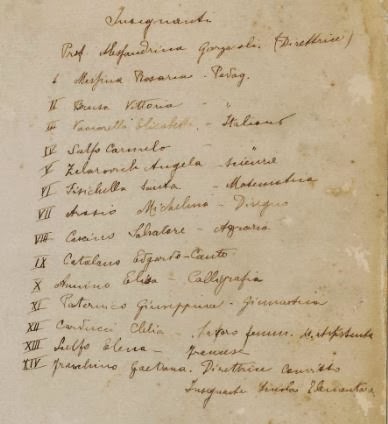 Insegnanti
Prof. Alessandrina Gorgo li. (Direttrice)
I Messina Rosaria - Pedag.
II Bensa Vittoria - "
III Elisabetta - Italiano
IV Salfo Carmelo - "
V Angela - scienze
VI Fisichella Santa - Matematica
VII Michelina - Disegno
VIII Cascino Salvatore - Agraria
IX Catalano Edgardo - Canto
X Annino Elisa - Calligrafia
XI Paternicò Giuseppina - Ginnastica
XII Carducci Clelia - Lavoro femm.
XIII Salfo Elena - francese
XIV Gaetana. Direttrice Convitto
Insegnante Scuola Elementare